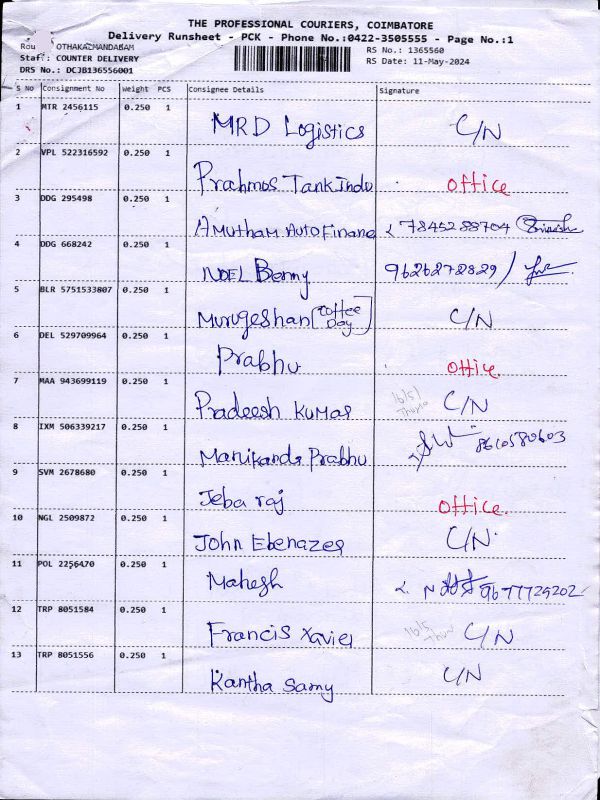 THE PROFESSIONAL COURIERS, COIMBATORE
Delivery Runsheet - PCK - Phone No.:0422-3505555 - Page No.:1
Rou OTHAKALMANDABAM
RS No.: 1365560
Staff: COUNTER DELIVERY
RS Date: 11-May-2024
DRS No.: DCJB136556001
S No Consignment No Weight PCS Consignee Details Signature
1 MTR 2456115 0.250 1 MRD Logistics C/N
2 VPL 522316592 0.250 1 Prahmos Tankindu office
3 DDG 295498 0.250 1 Amutham Auto Finance 7845288704
4 DDG 668242 0.250 1 NOEL Benny 9626272829
5 BLR 5751533807 0.250 1 Murugeshan [Coffee Day] C/N
6 DEL 529709964 0.250 1 Prabhu office.
7 MAA 943699119 0.250 1 Pradeesh Kumar 16/5/ C/N
8 IXM 506339217 0.250 1 Manikanda Prabhu 8610580603
9 SVM 2678680 0.250 1 Jeba raj office.
10 NGL 2509872 0.250 1 John Ebenazer C/N.
11 POL 2256470 0.250 1 Mahesh 9677729202
12 TRP 8051584 0.250 1 Francis Xavier 16/5 C/N
13 TRP 8051556 0.250 1 Kantha Samy C/N